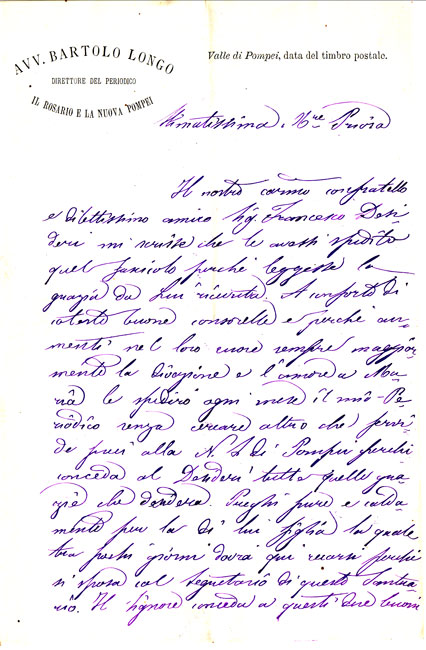 AVV. BARTOLO LONGO
DIRETTORE DEL PERIODICO
IL ROSARIO E LA NUOVA POMPEI
Valle di Pompei, data del timbro postale.
Stimatissima M.re Priora
Il nostro car.mo confratello
e dilettissimo amico Sig. Francesco Desi-
deri mi scrisse che le avessi spedito
quel fascicolo perché leggesse la
grazia da Lui ricevuta. A conforto di
coteste buone consorelle e perché au-
menti nel loro cuore sempre maggior-
mente la divozione e l'amore a Ma-
ria le spedirò ogni mese il mio Pe-
riodico senza cercare altro che
alla N. S. di Pompei perchi
conceda al Desideri tutte quelle gra-
zie che desidera. Preghi pure e calda-
mente per la di lui figlia la quale
tra pochi giorni dovrà qui recarsi perchi
si sposa col Segretario di questo Santua-
rio. Il Signore conceda a questi due buoni